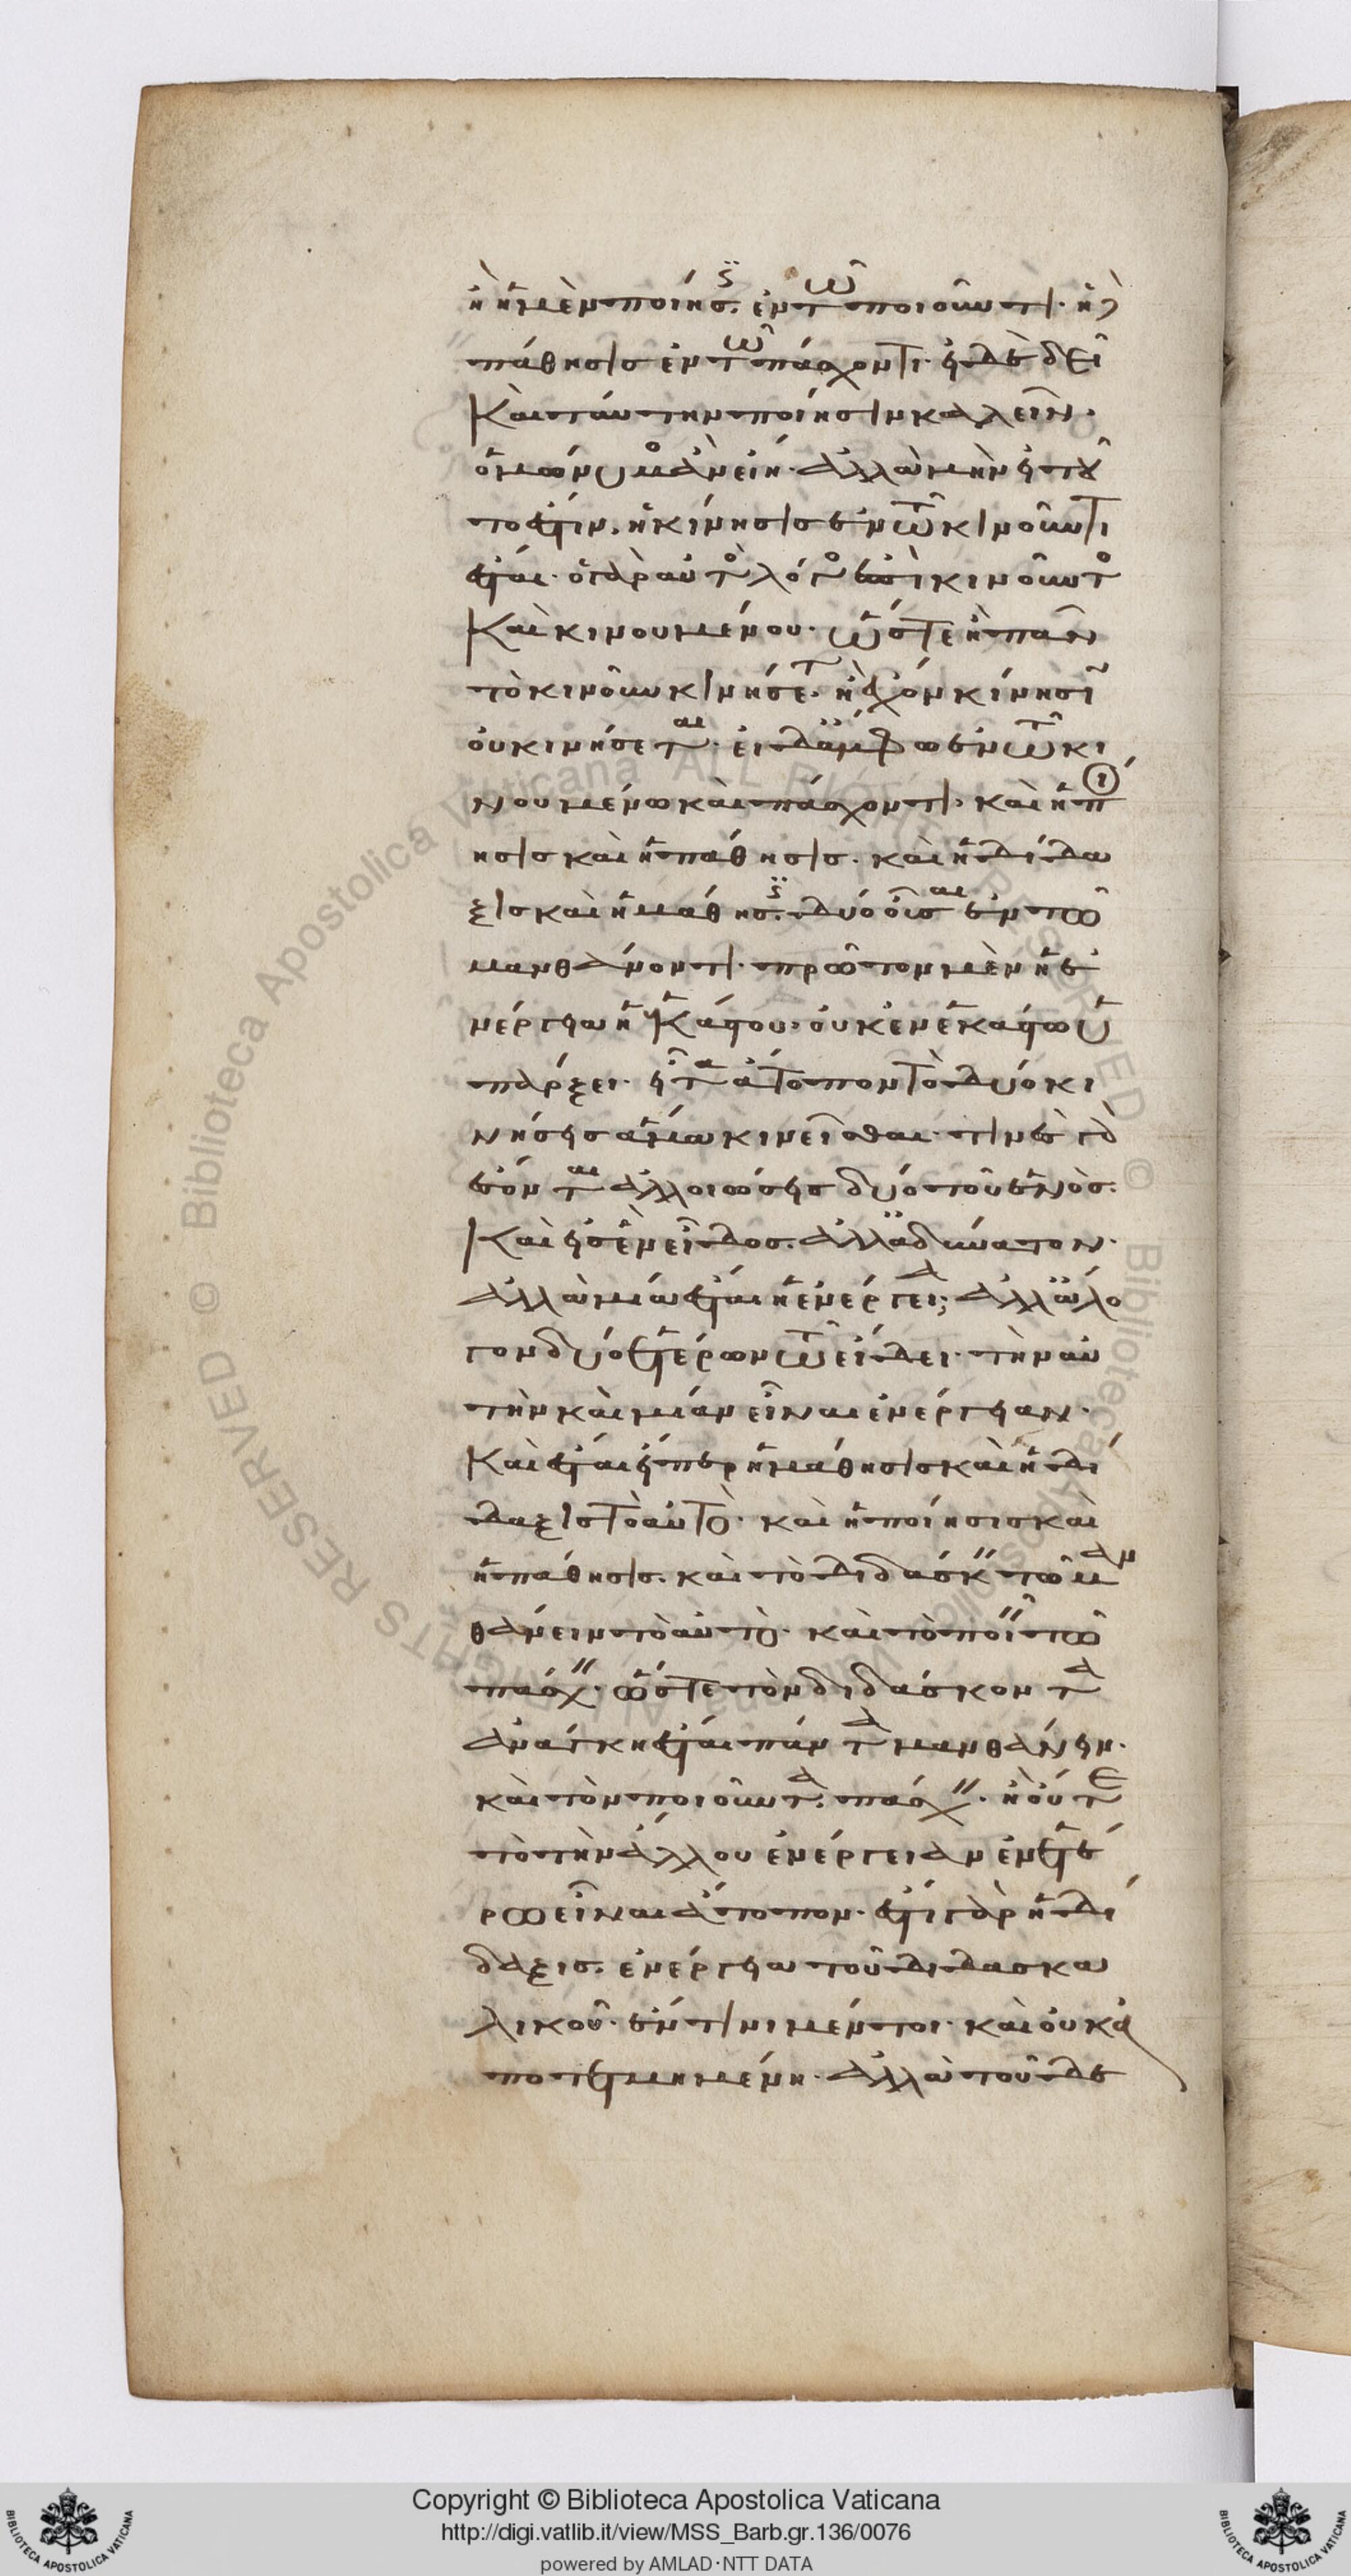 ἢ ἡ μὲν ποίησις ἐν τῶ ποιοῦντι· ἡ δὲ
πάθησις ἐν τῶ πάσχοντι· εἰ δὲ δεῖ
καὶ ταύτην ποίησιν καλεῖν·
ὁμώνυμος ἂν εἴη· ἀλλὰ μὴν εἰ τοῦ
το ἐστιν, ἡ κίνησις ἐν τῶ κινοῦντι
ἔσται· ὁ γὰρ αὐτὸς λόγος ἐπὶ κινοῦντος
καὶ κινουμένου· ὥστε ἢ πᾶν
τὸ κινοῦν κινήσεται· ἢ ἔχον κίνησιν
οὐ κινήσεται· εἰ δ' ἄμφω ἐν τῶ κι
νουμένω καὶ πάσχοντι· καὶ ἡ ποί
ησις καὶ ἡ πάθησις· καὶ ἡ δίδα
ξις καὶ ἡ μάθησις δύο οὖσαι ἐν τῶ
μανθάνοντι· πρῶτον μὲν ἡ ἐ
νέργεια ἡ ἑκάστου· οὐκ ἐν ἑκάστω ὑ
πάρξει· εἶτα ἄτοπον τὸ δύο κι
νήσεις ἅμα κινεῖσθαι· τίνες γὰρ
ἔσονται ἀλλοιώσεις δύο τοῦ ἑνὸς·
καὶ εἰς ἓν εἶδος· ἀλλ' ἀδύνατον·
ἀλλὰ μία ἔσται ἡ ἐνέργεια; ἀλλ' ἄλο
γον δύο ἑτέρων τῶ εἴδει· τὴν αὐ
τὴν καὶ μίαν εἶναι ἐνέργειαν·
καὶ ἔσται εἴπερ ἡ μάθησις καὶ ἡ δί
δαξις τὸ αὐτὸ· καὶ ἡ ποίησις καὶ
ἡ πάθησις· καὶ τὸ διδάσκειν τῶ μαν
θάνειν τὸ αὐτὸ· καὶ τὸ ποιεῖν τῶ
πάσχειν· ὥστε τὸν διδάσκοντα
ἀνάγκη ἔσται πάντα μανθάνειν·
καὶ τὸν ποιοῦντα πάσχειν· ἢ οὔτε
τὸ τὴν ἄλλου ἐνέργειαν ἐν ἑτέ
ρω εἶναι ἄτοπον· ἔστι γὰρ ἡ δί
δαξις· ἐνέργεια τοῦ διδασκα
λικοῦ· ἔν τινι μέντοι· καὶ οὐκ ἀ
ποτετμημένη· ἀλλὰ τοῦδε
Copyright © Biblioteca Apostolica Vaticana
http://digi.vatlib.it/view/MSS_Barb.gr.136/0076
powered by AMLAD·NTT DATA